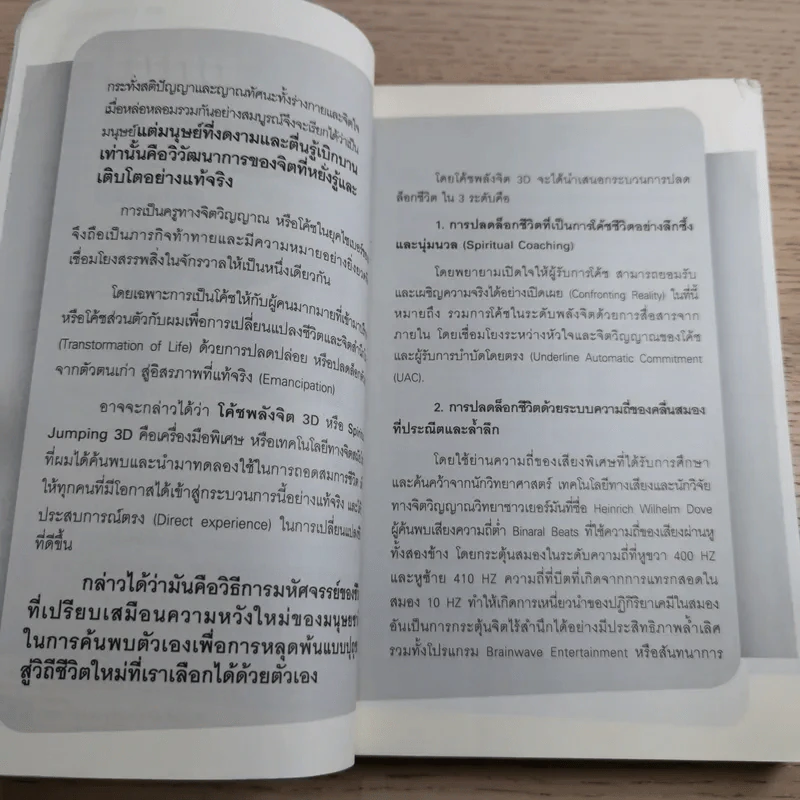 กระทั่งสติปัญญาและญาณทัศนะทั้งร่างกายและจิตใจ
เมื่อหล่อหลอมรวมกันอย่างสมบูรณ์จึงจะเรียกได้ว่าเป็น
มนุษย์แต่มนุษย์ที่งดงามและตื่นรู้เบิกบาน
เท่านั้นคือวิวัฒนาการของจิตที่หยั่งรู้และ
เติบโตอย่างแท้จริง
การเป็นครูทางจิตวิญญาณ หรือโค้ชในยุคไซเบอร์
จึงถือเป็นภารกิจท้าทายและมีความหมายอย่างยิ่ง
เชื่อมโยงสรรพสิ่งในจักรวาลให้เป็นหนึ่งเดียวกัน
โดยเฉพาะการเป็นโค้ชให้กับผู้คนมากมายที่เข้ามา
หรือโค้ชส่วนตัวกับผมเพื่อการเปลี่ยนแปลงชีวิตและ
(Transtormation of Life) ด้วยการปลดปล่อย หรือปลดล็อก
จากตัวตนเก่า สู่อิสรภาพที่แท้จริง (Emancipation)
อาจจะกล่าวได้ว่า โค้ชพลังจิต 3D หรือ
Jumping 3D คือเครื่องมือพิเศษ หรือเทคโนโลยีทางจิต
ที่ผมได้ค้นพบและนำมาทดลองใช้ในการถอดสมการชีวิต
ให้ทุกคนที่มีโอกาสได้เข้าสู่กระบวนการนี้อย่างแท้จริง
ประสบการณ์ตรง (Direct experience) ในการ
ที่ดีขึ้น
กล่าวได้ว่ามันคือวิธีการมหัศจรรย์ของ
ที่เปรียบเสมือนความหวังใหม่ของมนุษย
ในการค้นพบตัวเองเพื่อการหลุดพ้นแบบ
สู่วิถีชีวิตใหม่ที่เราเลือกได้ด้วยตัวเอง
โดยโค้ชพลังจิต 3D จะได้นำเสนอกระบวนการปลด
ล็อกชีวิต ใน 3 ระดับคือ
1. การปลดล็อกชีวิตที่เป็นการโค้ชชีวิตอย่างลึกซึ้ง
และนุ่มนวล (Spiritual Coaching)
โดยพยายามเปิดใจให้ผู้รับการโค้ช สามารถยอมรับ
และเผชิญความจริงได้อย่างเปิดเผย (Confronting Reality) ในที่นี้
หมายถึง รวมการโค้ชในระดับพลังจิตด้วยการสื่อสารจาก
ภายใน โดยเชื่อมโยงระหว่างหัวใจและจิตวิญญาณของโค้ช
และผู้รับการบำบัดโดยตรง (Underline Automatic Commitment
(UAC).
2. การปลดล็อกชีวิตด้วยระบบความถี่ของคลื่นสมอง
ที่ประณีตและล้ำลึก
โดยใช้ย่านความถี่ของเสียงพิเศษที่ได้รับการศึกษา
และค้นคว้าจากนักวิทยาศาสตร์ เทคโนโลยีทางเสียงและนักวิจัย
ทางจิตวิญญาณวิทยาชาวเยอรมันที่ชื่อ Heinrich Wilhelm Dove
ผู้ค้นพบเสียงความถี่ต่ำ Binaral Beats ที่ใช้ความถี่ของเสียงผ่านหู
ทั้งสองข้าง โดยกระตุ้นสมองในระดับความถี่ที่หูขวา 400 HZ
และหูซ้าย 410 HZ ความถี่ที่บีตที่เกิดจากการแทรกสอดใน
สมอง 10 HZ ทำให้เกิดการเหนี่ยวนำของปฏิกิริยาเคมีในสมอง
อันเป็นการกระตุ้นจิตไร้สำนึกได้อย่างมีประสิทธิภาพล้ำเลิศ
รวมทั้งโปรแกรม Brainwave Entertainment หรือสันทนาการ